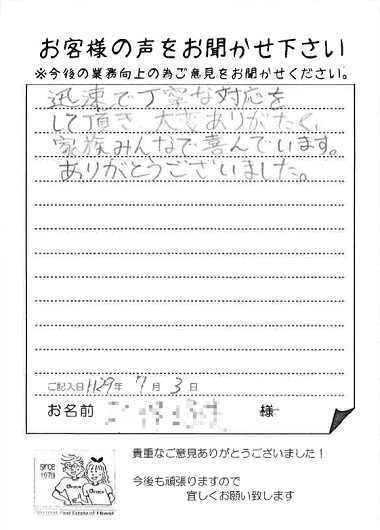 お客様の声をお聞かせ下さい
※今後の業務向上の為ご意見をお聞かせください。
迅速で丁寧な対応を
して頂き、大変ありがたく、
家族みんなで喜んでいます。
ありがとうございました。
ご記入日 H29年 7月 3日
お名前 様
貴重なご意見ありがとうございました！
since
1979
今後も頑張りますので
宜しくお願い致します